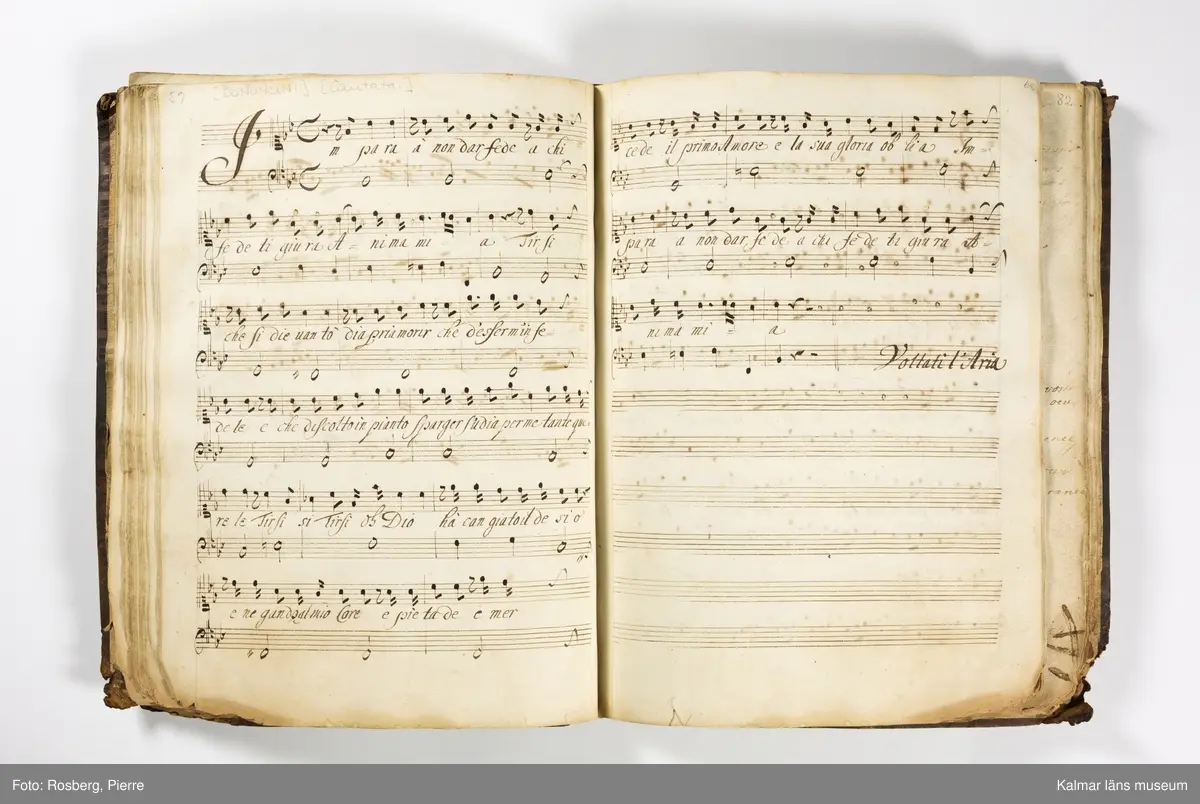 57 [BONONCINI] [Cantata.]
Im para à non dar fede a chi
fe de ti giura A- nima mi a Tirsi
che si die vanto dia pria morir ch'e d'esser infe-
de le e che discolto in pianto sparger s'udia per me tante que
re le Tirsi si Tirsi oh Dio hà can giato il de si o
e ne gando al mio Core e pie tà de e mer
ce de il primo Amore e la sua gloria ob li a Im-
para a non dar fe de a chi fè de ti giura A-
nima mi a
Voltati l'Aria
82.
Foto: Rosberg, Pierre
Kalmar läns museum